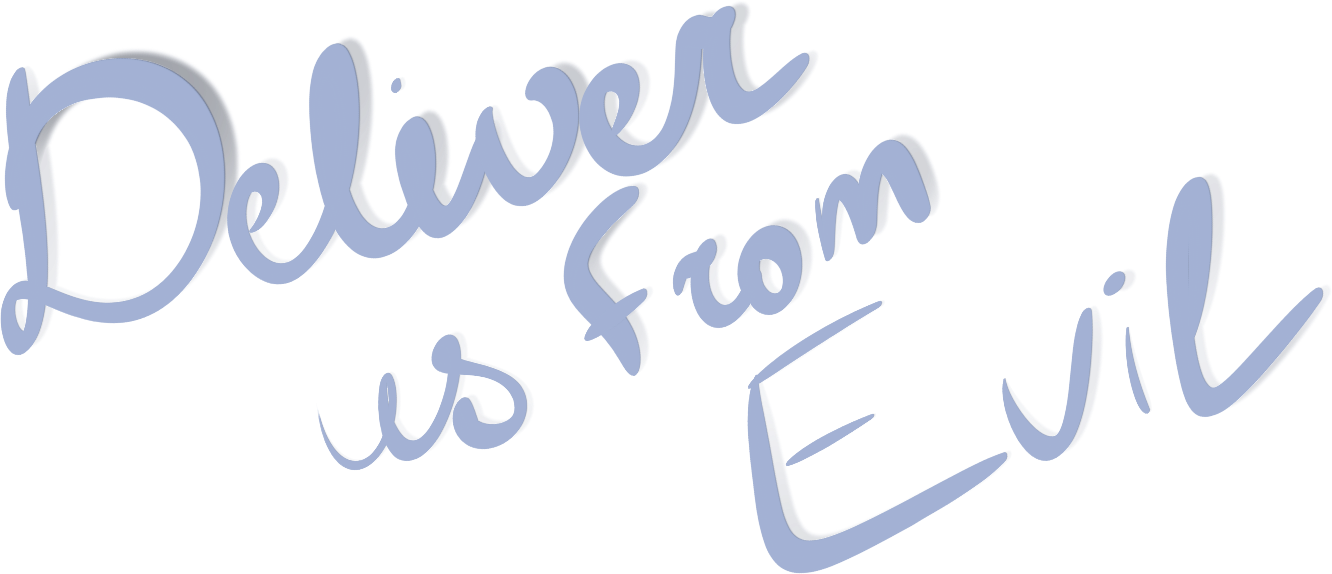 Deliver
us From
Evil